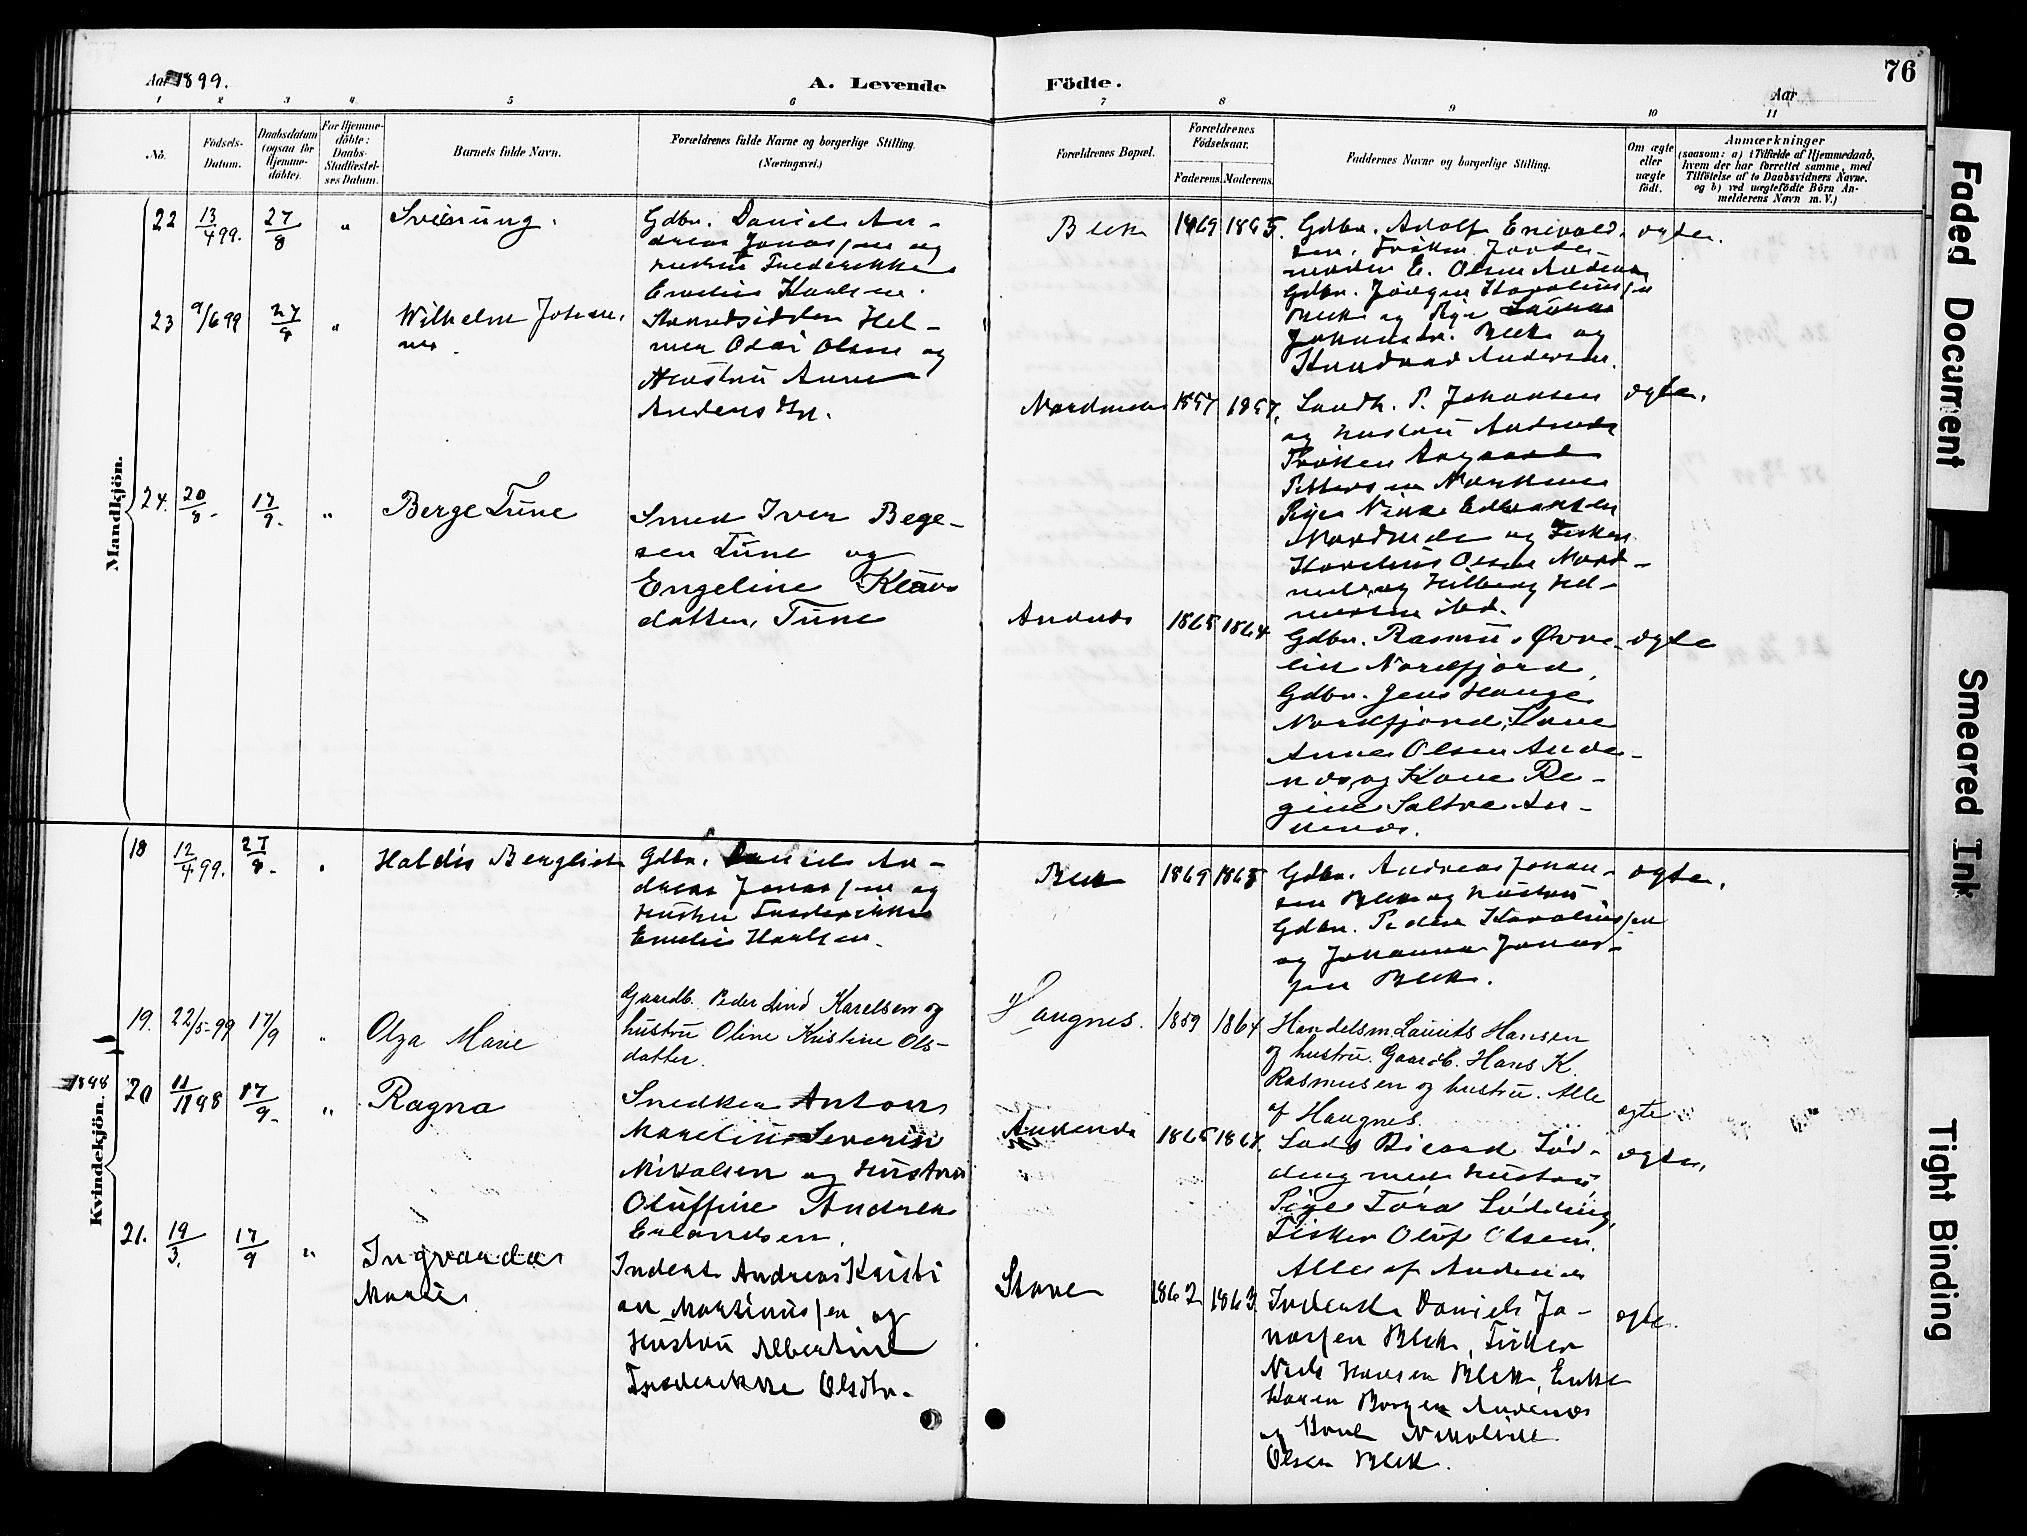 76
Aar 1899.
A. Levende Födte.
Aar
1 2 3 4 5 6 7 8 9 10 11
No.
Födsels-
Datum.
Daabsdatum
(ogsaa for
Hjemme-
döbte).
For Hjemme-
döbte:
Daabs-
Stadfæstel-
ses Datum.
Barnets fulde Navn.
Forældrenes fulde Navne og borgerlige Stilling.
(Næringsvei.)
Forældrenes Bopæl.
Forældrenes
Födselsaar.
Faderens.
Moderens.
Faddernes Navne og borgerlige Stilling.
Om ægte
eller
uægte
födt.
Anmærkninger
(saasom: a) i Tilfælde af Hjemmedaab,
hvem der har forrettet samme, med
Tilföielse af to Daabsvidners Navne.
og b) ved uægtefödte Börn An-
melderens Navn m. V.)
Mandkjön.
22 13/4 99. 27/8 "
Gdbr. Daniel An-
dreas Jonassen og
hustru Frederikke
Emelie Karlsen.
Bleik 1869 1865.
Gdbr. Adolf Enevold-
sen, Frøken Jorde-
moder E. Olsen Andenæs
Gdbr. Jørgen Karoliussen
Bleik og Pige
Johansdr. Bleik og
Andersen.
ægte.
23 9/6 99 27/8 "
Wilhelm Johan-
Strandsidder Hel-
mer Odin Olsen og
Hustru Anne
Andersdtr.
1857 1857.
Landh. P. Johansen
og hustru Andenæs
Frøken Aagaard
og Fisker
Karolius Olsen Nord-
og Hel-
mersen ibd.
ægte.
24. 20/8. 17/9. "
Berge Tune
Smed Iver Berge-
sen Tune og
Engeline Klaus
datter, Tune
Andenæs 1865 1864
Gdbr. Rasmus Øvre-
lid Nordfjord,
Gdbr. Jens Hauge
Nordfjord, Kone
Anne Olsen Ande-
næs, og Kone Re-
gine Saltve An-
denæs.
ægte
Kvindekjön.
18 12/4 99. 27/8. "
Haldis Bergliot
Gdbr. Daniel An-
dreas Jonassen og
Hustru Frederikke
Emelie Karlsen.
Bleik 1869 1865
Gdbr. Andreas Johan-
sen Bleik og hustru
Gdbr. Peder Karoliussen
og Johanna Jonas-
sen Bleik.
ægte.
19. 22/5-99 17/9 "
Olga Marie
Gaardb. Peder Lind Karelsen og
hustru Oline Kristine Ols-
datter.
Haugnes. 1859 1864
Handelsm Laurits Hansen
og hustru. Gaardb. Hans K.
Rasmusen og hustru. Alle
af Haugnes.
ægte
1898 20 11/11 98 17/9. "
Ragna
Snedker Anton
Marelius Severin
Nikolsen og Hustru
Oluffine Andrea
Erlandsen.
Andenæs 1865 1864.
Lods Ricard Lød-
ding med hustru
Pige Tora Lødding,
Fisker Oluf Olsen.
Alle af Andenæs
ægte.
21. 19/3. 17/9 "
Ingvarda
Marie
Inderst Andreas Kristi
an Martinussen og
Hustru Albertine
Frederikke Olsdtr.
Stave 1862 1863
Inderst Daniel Jo-
nassen Bleik, Fisker
Niels Hansen Bleik, Enke
Karen Borgen Andenæs
og Kone Nikoline
Olsen Bleik.
ægte.
Faded Document
Smeared Ink
Tight Binding